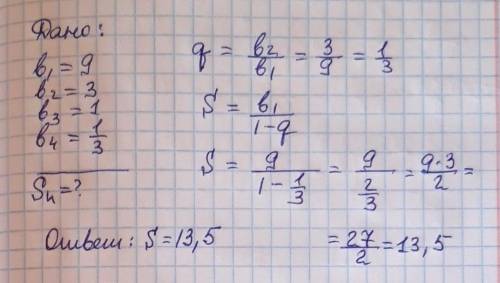 Дано:
в₁ = 9
в₂ = 3
в₃ = 1
в₄ = 1/3
Sн = ?
q = в₂/в₁ = 3/9 = 1/3
S = в₁/(1-q)
S = 9/(1-1/3) = 9/(2/3) = 9·3/2 =
= 27/2 = 13,5
Ответ: S = 13,5